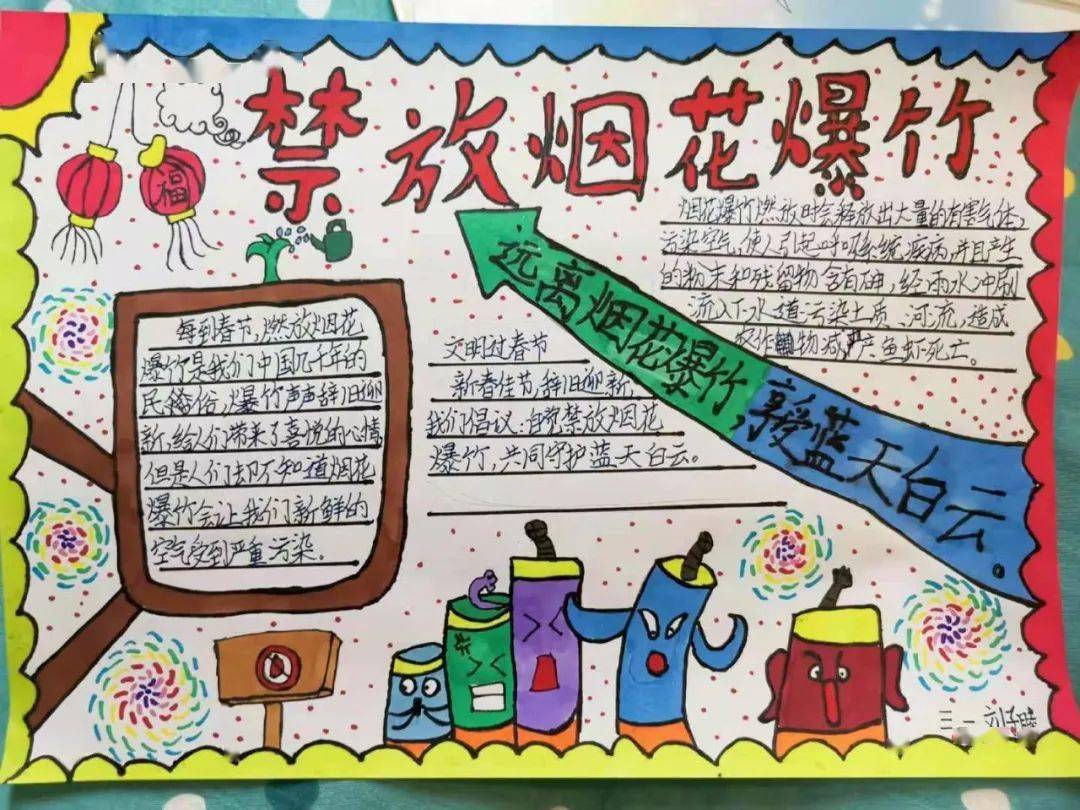 禁放烟花爆竹
福
烟花爆竹燃放时会释放出大量的有害气体，
污染空气，使人引起呼吸系统疾病，并且产生
的粉末和残留物含有砷，经雨水冲刷
流入下水道污染土质、河流，造成
农作物减产，鱼虾死亡。
远离烟花爆竹，享受蓝天白云。
每到春节，燃放烟花
爆竹是我们中国几千年的
民俗，爆竹声声辞旧迎
新，给人们带来了喜悦的心情
但是人们却不知道烟花
爆竹会让我们新鲜的
空气受到严重污染。
文明过春节
新春佳节，辞旧迎新，
我们倡议：自觉禁放烟花
爆竹，共同守护蓝天白云。
三一